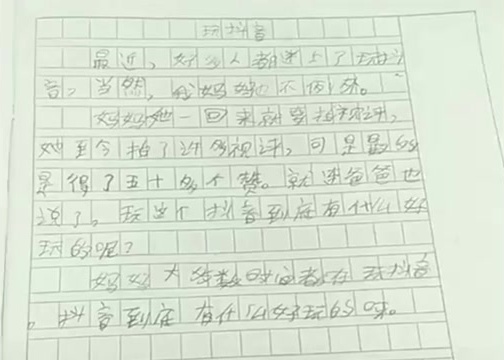 玩抖音
最近，好多人都迷上了玩抖
音。当然，我妈妈也不例外。
妈妈她一回来就要拍视评，
她至今拍了许多视评，可是最多
是得了五十多个赞。就连爸爸也
说了，玩这个抖音到底有什么好
玩的呢？
妈妈大多数时间都在玩抖音
。抖音到底有什么好玩的呀。